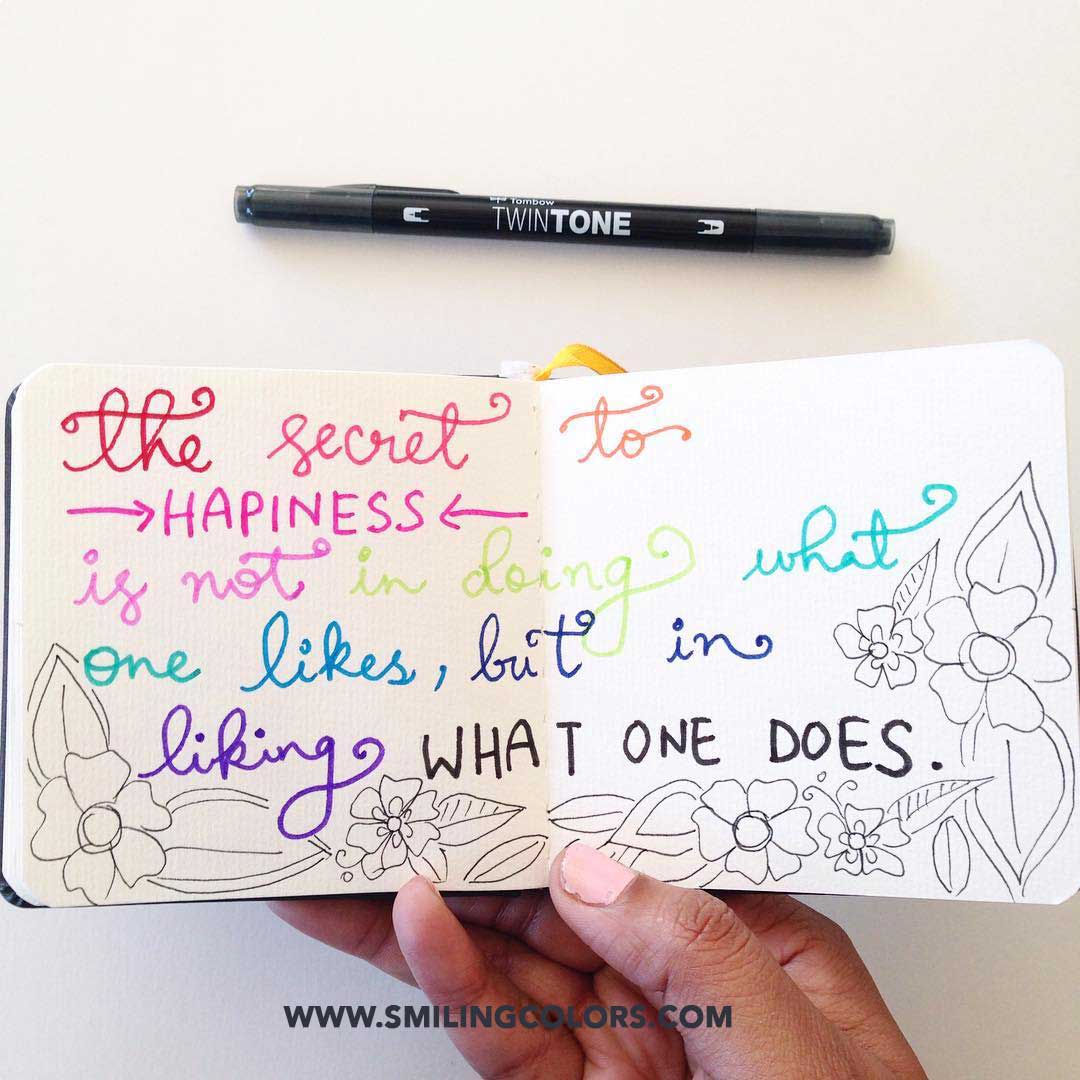 Tombow
TWINTONE
the secret to
→HAPINESS←
is not in doing what
one likes, but in
liking WHAT ONE DOES.
WWW.SMILINGCOLORS.COM